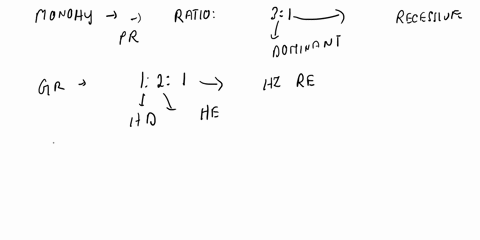 MONOHY → → RATIO: 3:1 → RECESSIVE
PR ↓ DOMINANT
GR → 1:2:1 → HZ RE
HD HE